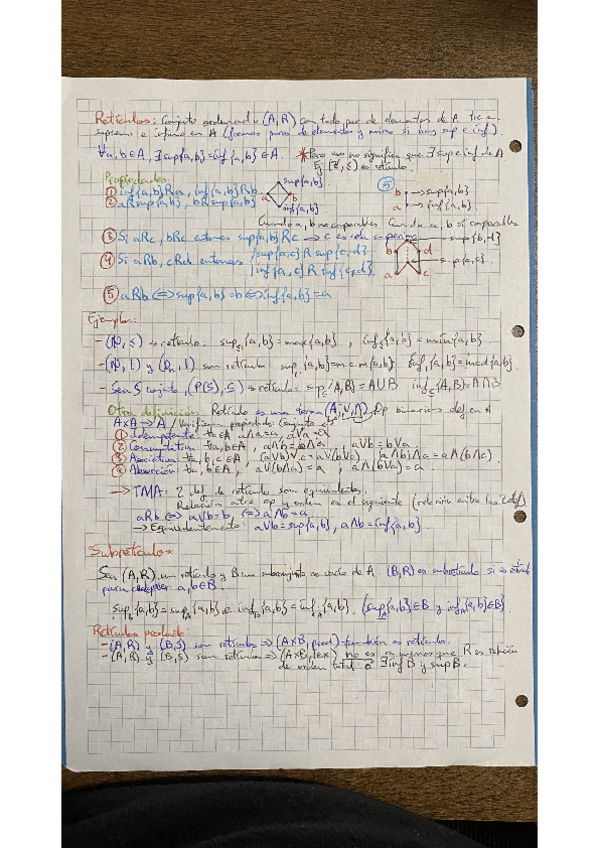 Retículos: Conjunto ordenado (A,R) con todo par de elementos de A tiene
supremo e ínfimo en A (formas pares de elementos y miras si hay sup e inf).
∀a,b∈A, ∃sup{a,b}=inf{a,b}∈A. *Pero eso no significa que ∃ sup e inf de A
Ej. (Z,≤) es retículo.
Propiedades:
① inf{a,b}Ra, inf{a,b}Rb
② aRsup{a,b}, bRsup{a,b}
sup{a,b}
a b
inf{a,b}
Cuando a,b no comparables
⑤
b → sup{a,b}
a → inf{a,b}
Cuando a,b sí comparables
③ Si aRc, bRc entonces sup{a,b}Rc → c es cota superior
④ Si aRb, cRd entonces sup{a,c}R sup{b,d}
inf{a,c}R inf{b,d}
sup{b,d}
b d
sup{a,c}
a c
⑤ aRb ⟺ sup{a,b}=b ⟺ inf{a,b}=a
Ejemplos:
- (N,≤) es retículo. sup{a,b}=max{a,b}, inf{a,b}=min{a,b}.
- (N,|) y (Dn,|) son retículo sup{a,b}=m.c.m{a,b} inf{a,b}=mcd{a,b}.
- Sea S conjunto, (P(S),⊆) es retículo sup{A,B}=A∪B inf{A,B}=A∩B
Otra definición: Retículo es una terna (A,∨,∧) Op binarias def en A
AxA→A / Verifican propiedades:
① Idempotente ∀a∈A a∧a=a, a∨a=a
② Conmutativa ∀a,b∈A, a∧b=b∧a, a∨b=b∨a
③ Asociativa ∀a,b,c∈A (a∨b)∨c=a∨(b∨c) (a∧b)∧c=a∧(b∧c)
④ Absorción ∀a,b∈A, a∨(b∧a)=a, a∧(b∨a)=a
→ TMA: 2 def de retículo son equivalentes.
Relación entre op y orden es el siguiente (relación entre las 2 def)
aRb ⟺ a∨b=b, ⟺ a∧b=a
→ Equivalentemente: a∨b=sup{a,b}, a∧b=inf{a,b}
Subretículos:
Sea (A,R) un retículo y B un subconjunto no vacío de A. (B,R) es subretículo si
para cualquier a,b∈B.
sup_B{a,b}=sup_A{a,b} e inf_B{a,b}=inf_A{a,b}. (sup_A{a,b}∈B y inf_A{a,b}∈B)
Retículos producto:
- (A,R) y (B,S) son retículos ⟹ (AxB, prod) también es retículo.
- (A,R) y (B,S) son retículos ⟹ (AxB, lex) no es a menos que R es relación
de orden total o ∃ inf B y sup B.